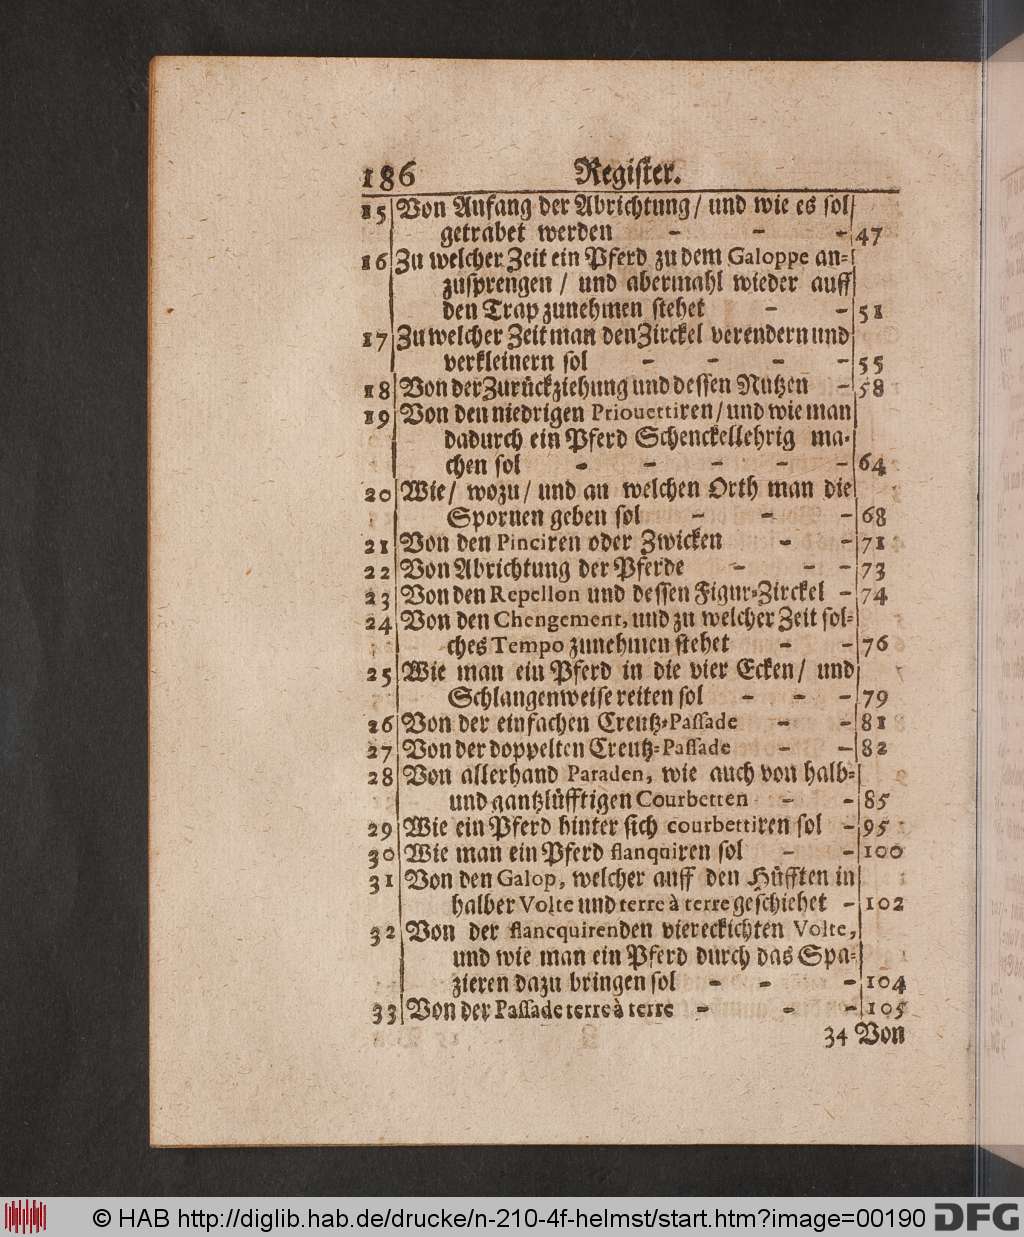 186 Register.
15 Von Anfang der Abrichtung / und wie es sol
getrabet werden - - - 47
16 Zu welcher Zeit ein Pferd zu dem Galoppe an-
zusprengen / und abermahl wieder auff
den Trap zunehmen stehet - - 51
17 Zu welcher Zeit man den Zirckel verendern und
verkleinern sol - - - - 55
18 Von der Zurückziehung und dessen Nutzen - 58
19 Von den niedrigen Priouettiren / und wie man
dadurch ein Pferd Schenckellehrig ma-
chen sol - - - - - 64
20 Wie / wozu / und an welchen Orth man die
Spornen geben sol - - - 68
21 Von den Pinciren oder Zwicken - - 71
22 Von Abrichtung der Pferde - - - 73
23 Von den Repellon und dessen Figur-Zirckel - 74
24 Von den Chengement, und zu welcher Zeit sol-
ches Tempo zunehmen stehet - - 76
25 Wie man ein Pferd in die vier Ecken / und
Schlangenweise reiten sol - - - 79
26 Von der einfachen Creutz-Passade - - 81
27 Von der doppelten Creutz-Passade - - 82
28 Von allerhand Paraden, wie auch von halb-
und gantzlüfftigen Courbetten - - 85
29 Wie ein Pferd hinter sich courbettiren sol - 95
30 Wie man ein Pferd flanquiren sol - - 100
31 Von den Galop, welcher auff den Hüfften in
halber Volte und terre à terre geschiehet - 102
32 Von der flancquirenden viereckichten Volte,
und wie man ein Pferd durch das Spa-
zieren dazu bringen sol - - - 104
33 Von der Passade terre à terre - - - 105
34 Von
© HAB http://diglib.hab.de/drucke/n-210-4f-helmst/start.htm?image=00190 DFG